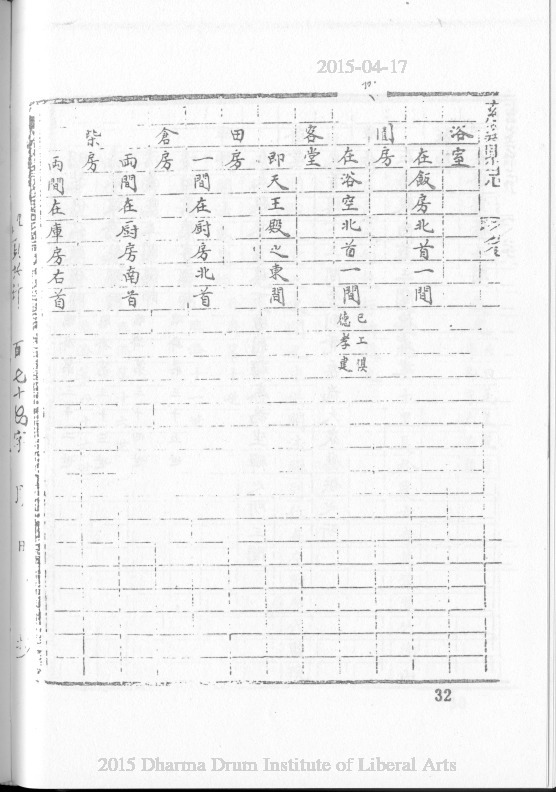 2015-04-17
浴室
在飯房北首一間
圊房
在浴室北首一間 已工俱德孝建
客堂
即天王殿之東間
田房
一間在厨房北首
倉房
兩間在厨房南首
柴房
兩間在庫房右首
百七十
字
月
日
32
2015 Dharma Drum Institute of Liberal Arts